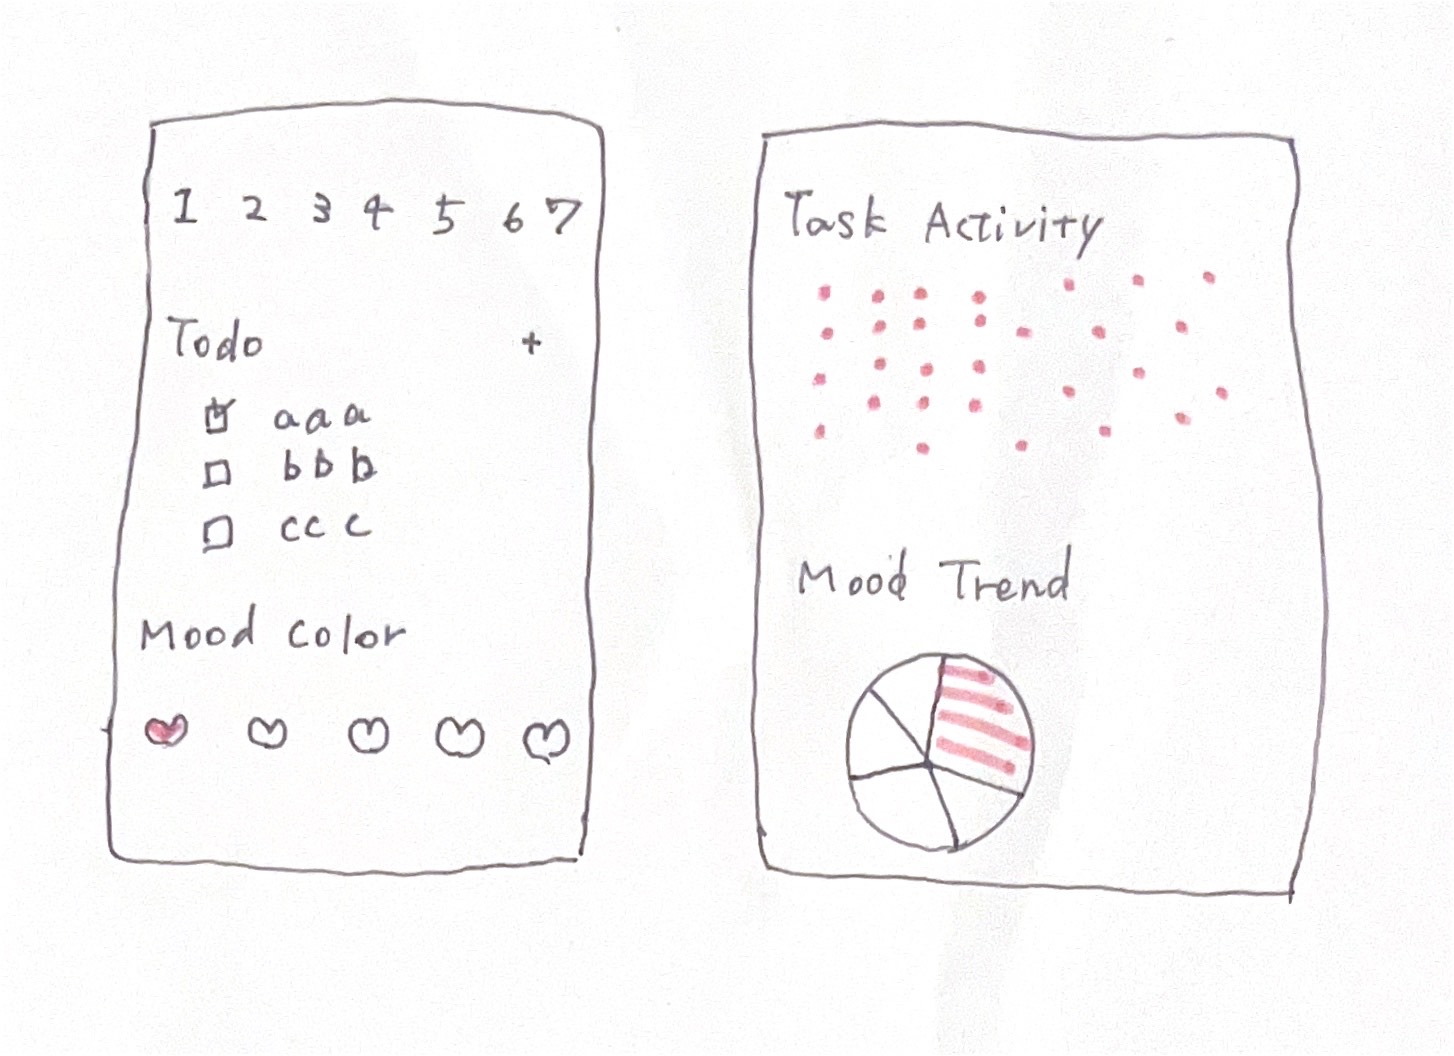 1 2 3 4 5 6 7
Todo +
aaa
bbb
ccc
Mood Color
Task Activity
Mood Trend